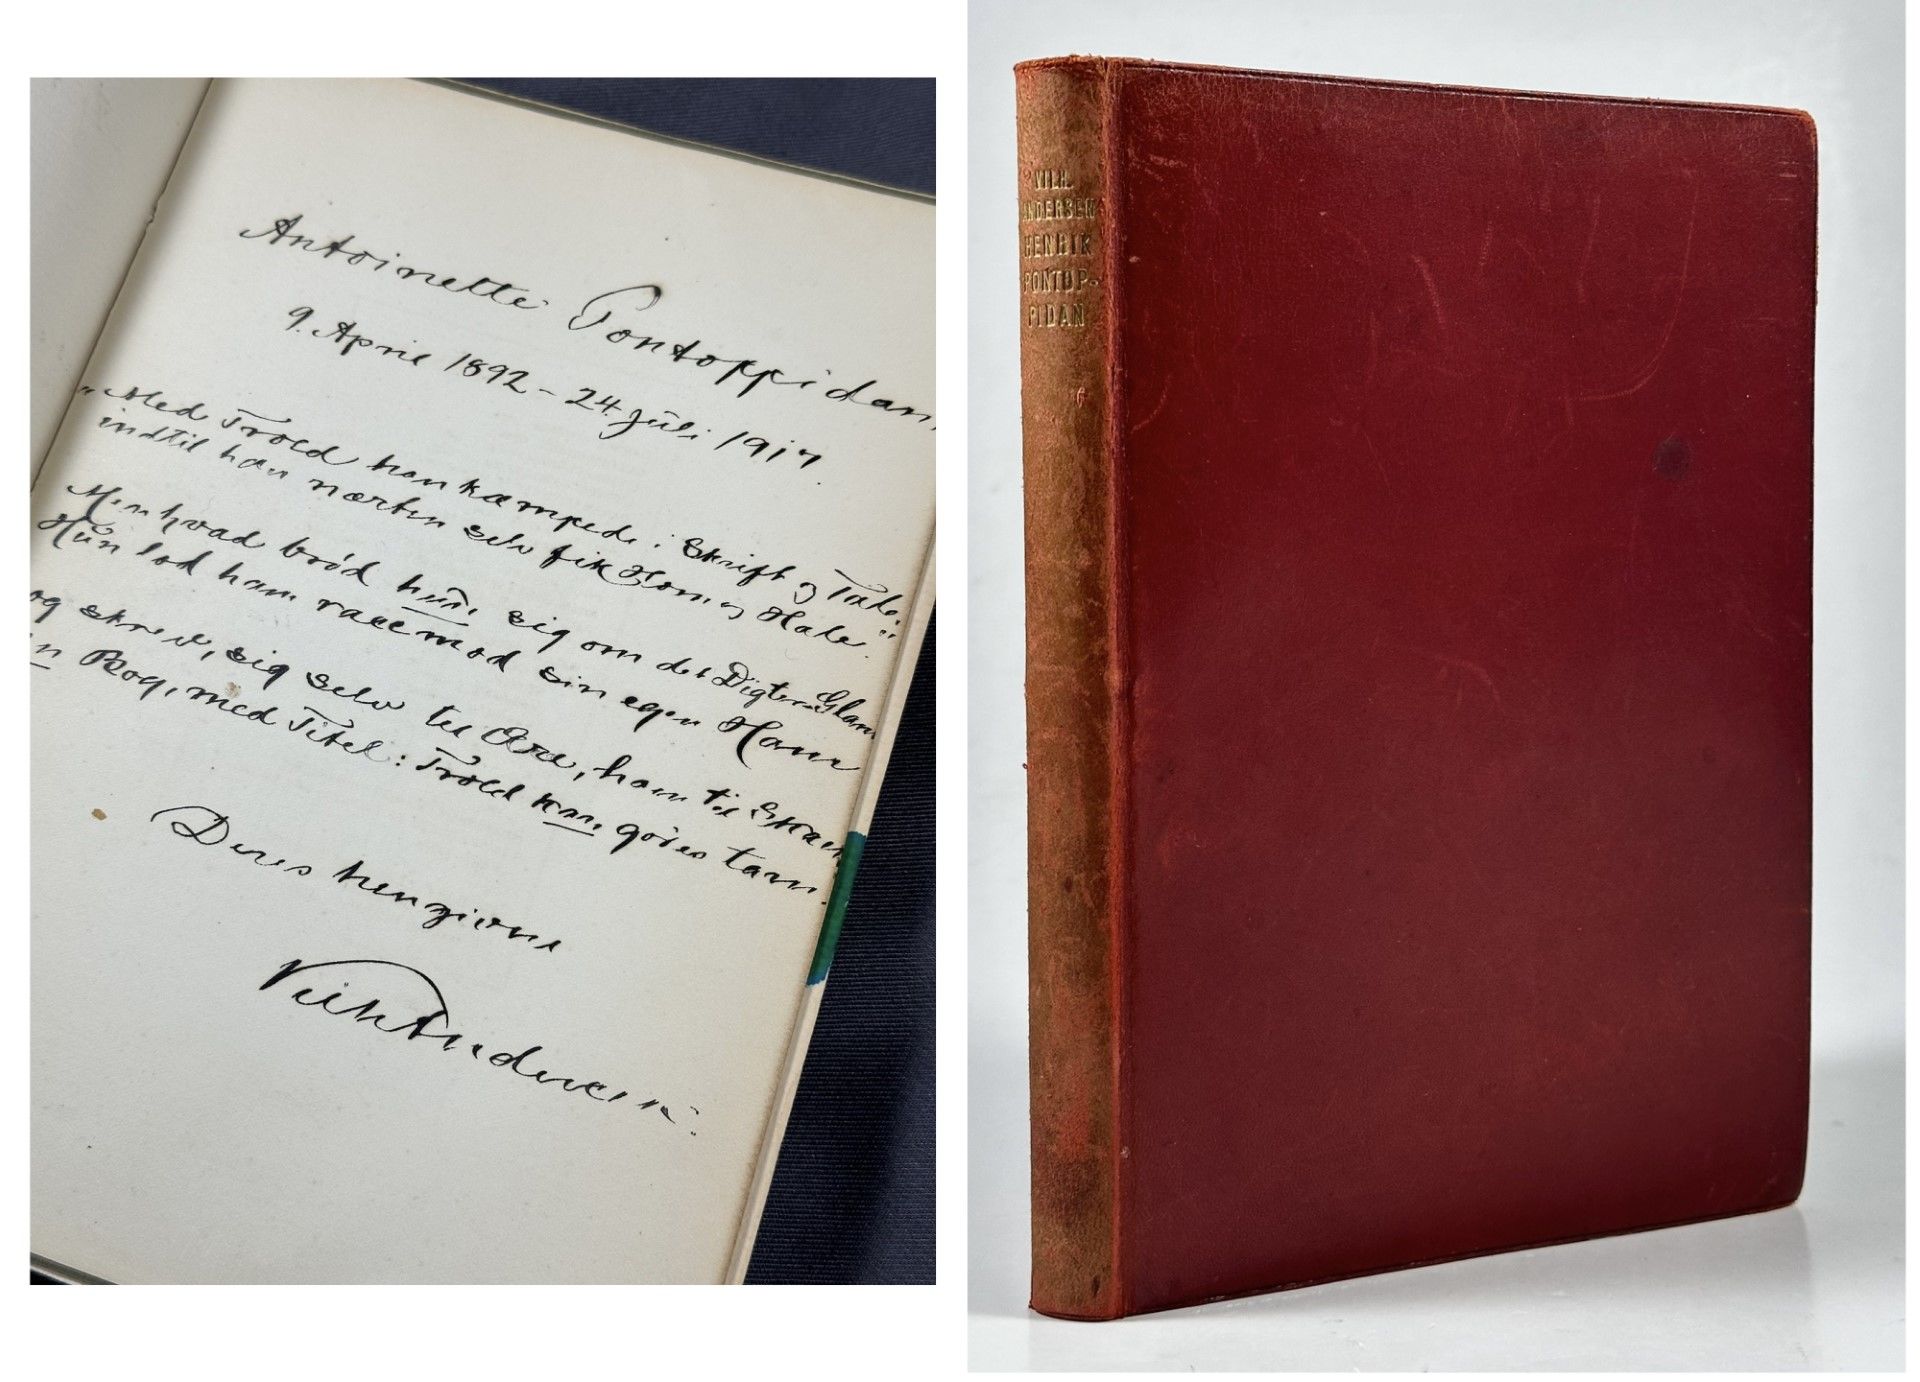 Antoinette Pontoppidan
9. April 1892 - 24. Juli 1917.
"Med Trold han kæmped i Skrift og Tale,
indtil han næsten selv fik Horn og Hale."
Men hvad brød hun sig om det Digter-Glam
Hun lod ham rase mod sin egen Ham
og skrev, sig selv til Ære, ham til
en Bog, med Titel: Trold kan gøres tam.
Deres hengivne
Vilh Andersen.
VILH.
ANDERSEN
HENRIK
PONTOP-
PIDAN